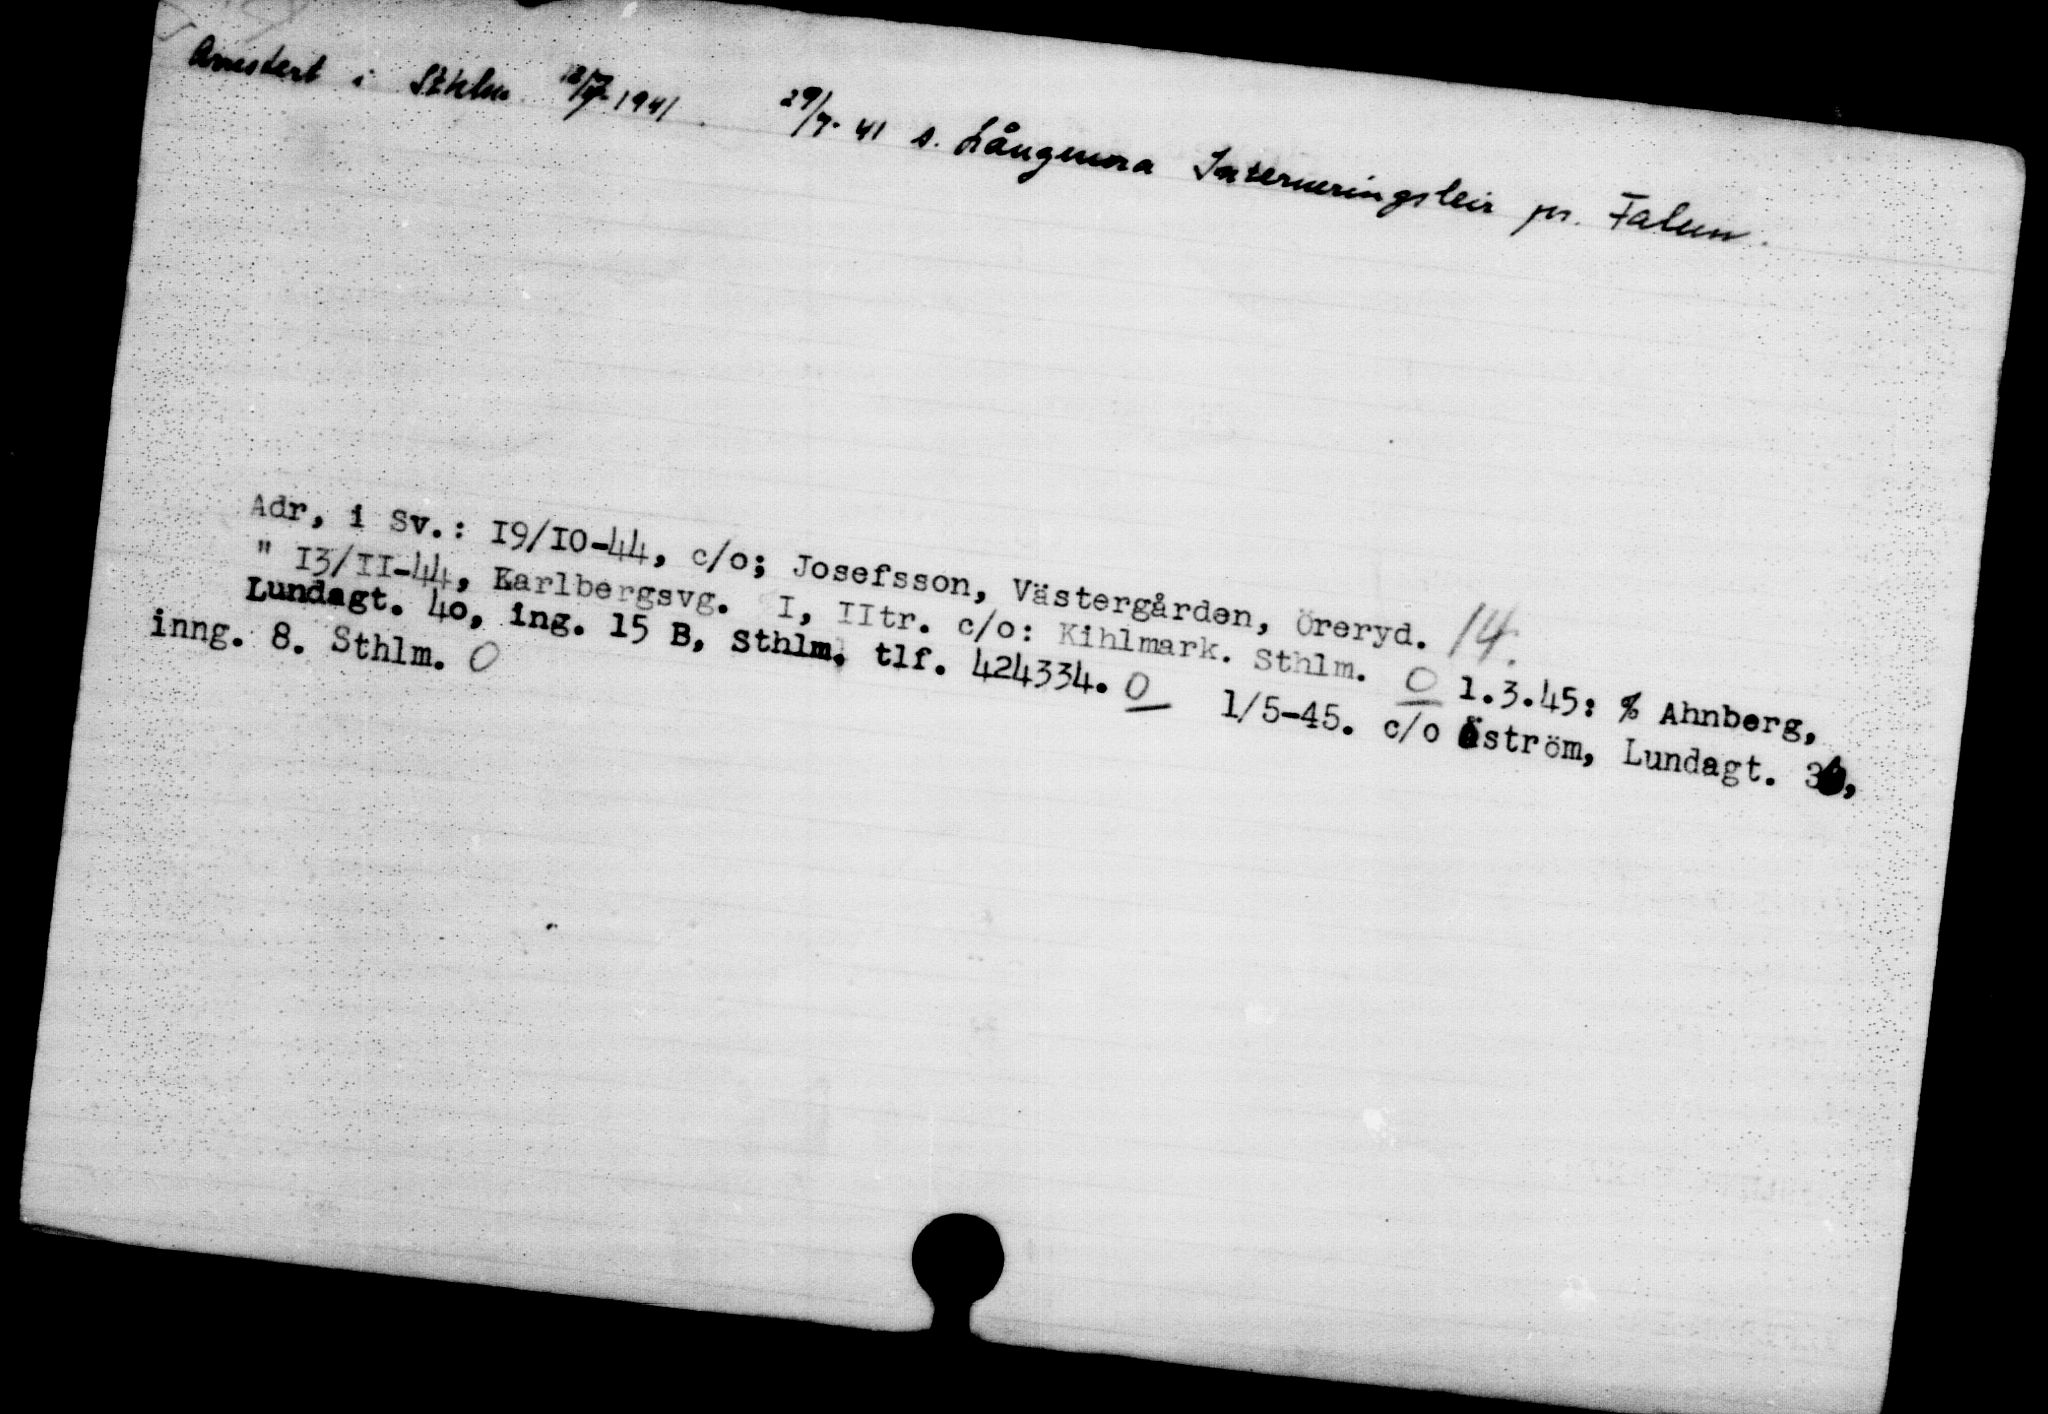 Arrestert i Sthlm. 12/7-1941. 29/7-41 s. Långmora Interneringsleir pr. Falun.
Adr, i Sv.: I9/IO-44, c/o; Josefsson, Västergården, Öreryd. 14.
" I3/II-44, Karlbergsvg. I, IItr. c/o: Kihlmark. Sthlm. O 1.3.45: % Ahnberg,
Lundagt. 4o, ing. 15 B, Sthlm, tlf. 424334. O 1/5-45. c/o Öström, Lundagt. 36,
inng. 8. Sthlm. O